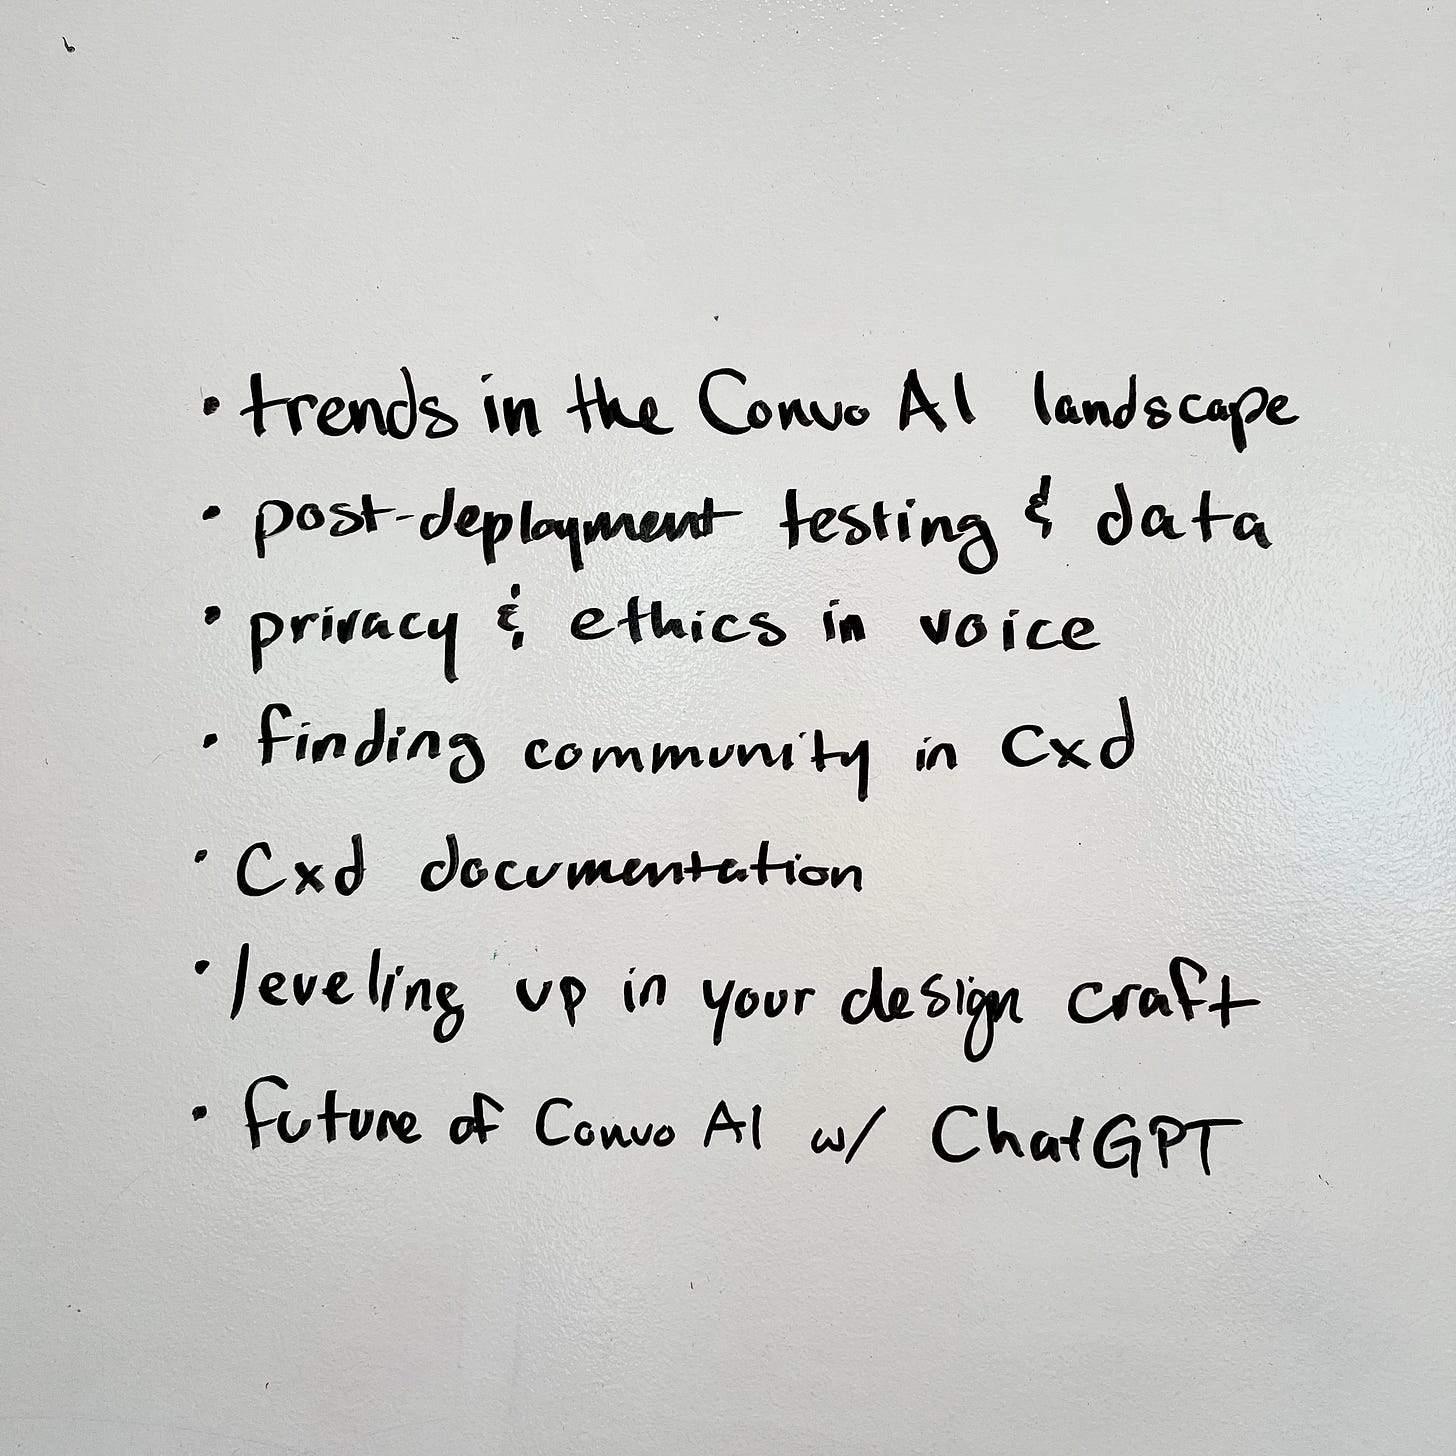 • trends in the Convo AI landscape
• post-deployment testing & data
• privacy & ethics in voice
• finding community in Cxd
• Cxd documentation
• leveling up in your design craft
• future of Convo AI w/ ChatGPT